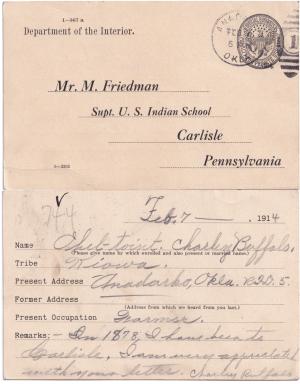 1-567 a
Department of the Interior.
ANADARKO
OKLA
1
Mr. M. Friedman
Supt. U. S. Indian School
Carlisle
Pennsylvania
744
Feb. 7 1914
Name Charley Buffalo.
(Please give name by which enrolled and also present or married name.)
Tribe Kiowa.
Present Address Anadarko, Okla. R.F.D. 5.
Former Address
(Address from which we heard from you last.)
Present Occupation Farmer.
Remarks:— In 1878, I have been to
Carlisle, I am very appreciated
with your letter. Charley Buffalo